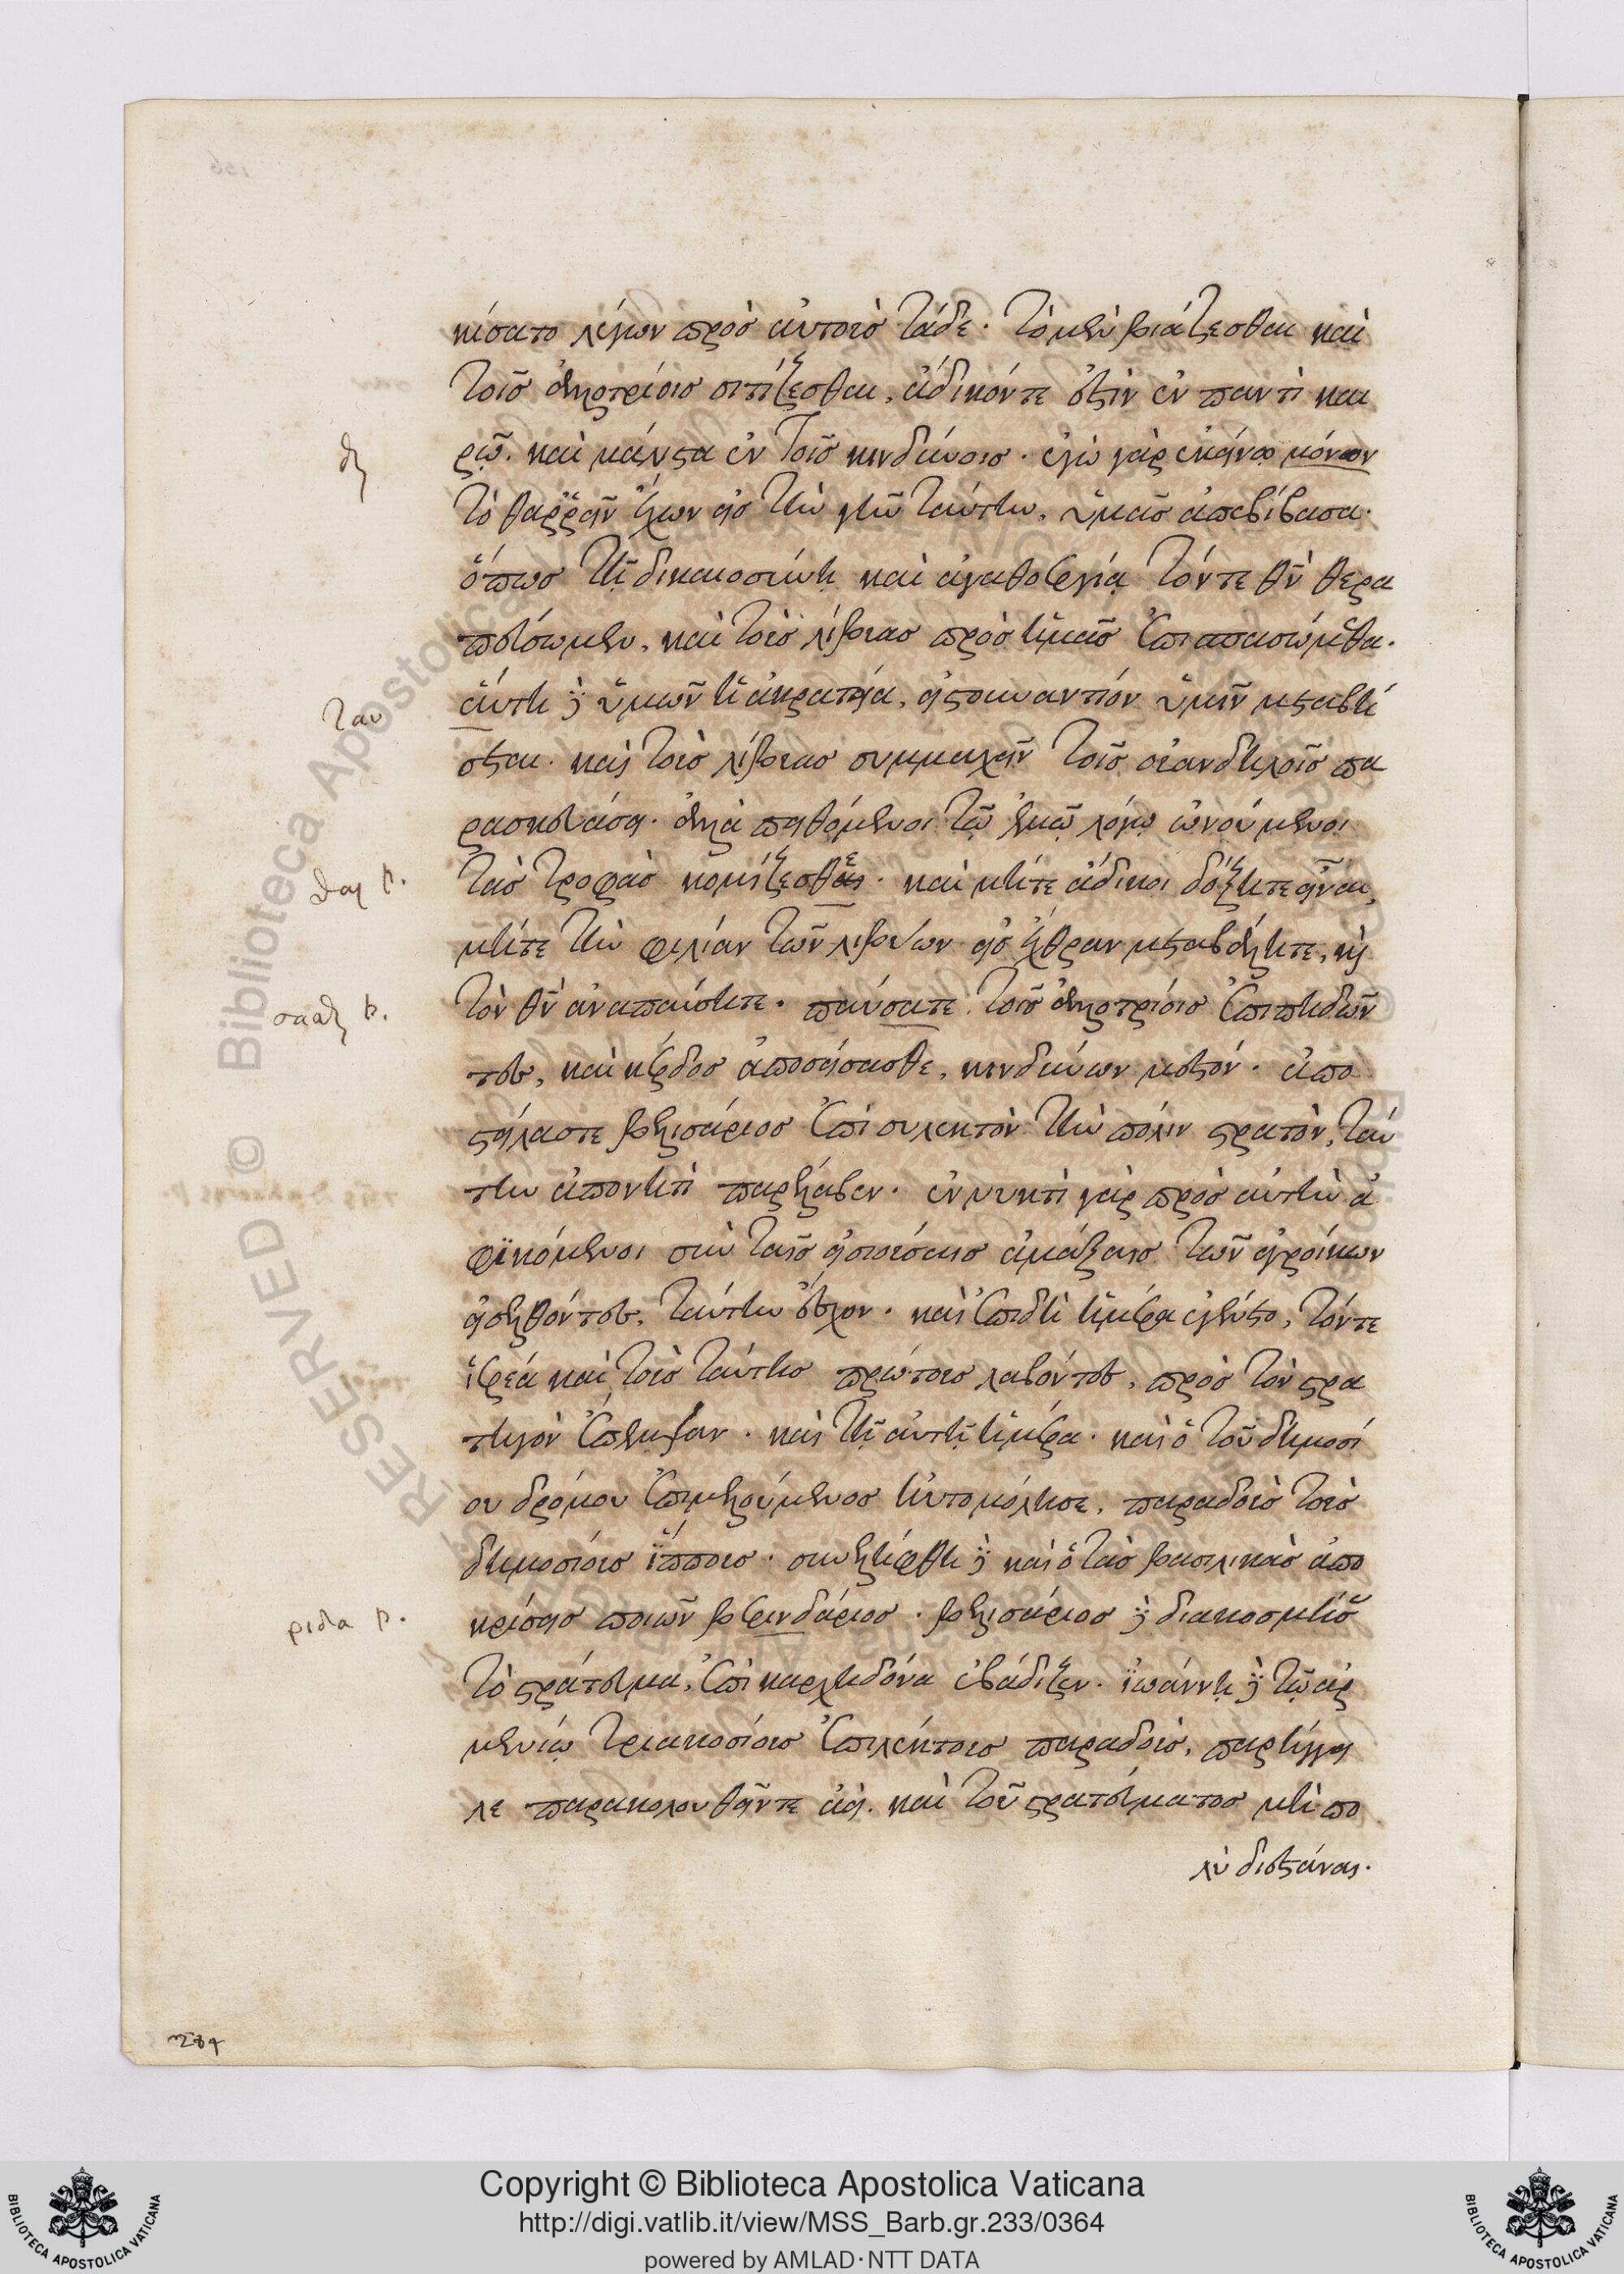 κίσατο λέγων πρὸσ αὐτοὺσ τάδε. τὸ μὲν βιάζεσθαι καὶ
τοῖσ ἀλλοτρίοισ σιτίζεσθαι, ἀδικόν τε ἐστὶν ἐν παντὶ και
ρῷ. καὶ μάλιστα ἐν τοῖσ κινδύνοισ. ἐγὼ γὰρ
τὸ θαρρεῖν ἔχων εἰσ τὴν γῆν ταύτην, ὑμᾶσ ἀπεβίβασα.
ὅπωσ τῇ δικαιοσύνῃ καὶ ἀγαθοεργίᾳ τόν τε θν̄ θερα
πεύσωμεν, καὶ τοὺσ λίβυασ πρὸσ ἡμᾶσ ἐπισπασώμεθα.
αὕτη δὲ ὑμῶν ἡ ἀκράτεια, εἰσ τουναντίον ὑμῖν μεταβή
σεται. καὶ τοὺσ λίβυασ συμμαχεῖν τοῖσ οὐανδήλοισ πα
ρασκευάσει. ἀλλὰ πειθόμενοι τῷ ἐμῷ λόγῳ ὠνούμενοι
τὰσ τροφὰσ κομίζεσθε. καὶ μήτε ἄδικοι δόξητε εἶναι,
μήτε τὴν φιλίαν τῶν λιβύων εἰσ ἔχθραν μεταβάλητε, καὶ
τὸν θν̄ ἀναπαύσητε. παύσατε τοῖσ ἀλλοτρίοισ ἐπιπηδῶν
τεσ, καὶ κέρδοσ ἀποσείσασθε, κινδύνων μεστόν. ἀπο
στείλασ τε βελισάριοσ ἐπὶ συλεκτὸν τὴν πόλιν στρατὸν, ταύ
την ἀπονητὶ παρέλαβεν. ἐν νυκτὶ γὰρ πρὸσ αὐτὴν ἀ
φϊκόμενοι σὺν ταῖσ εἰσιούσαισ ἁμάξαισ τῶν ἀγροίκων
εἰσελθόντεσ, ταύτην ἔσχον. καὶ ἐπειδὴ ἡμέρα ἐγένετο, τόν τε
ἱερέα καὶ τοὺσ ταύτησ πρώτουσ λαβόντεσ, πρὸσ τὸν στρα
τηγὸν ἔπεμψαν. καὶ τῇ αὐτῇ ἡμέρα. καὶ ὁ τοῦ δημοσί
ου δρόμου ἐπιμελούμενοσ ηὐτομόλησε, παραδοὺσ τοὺσ
δημοσίουσ ἵππουσ. συνελήφθη δὲ καὶ ὁ τὰσ βασιλικὰσ ἀπο
κρίσεισ ποιῶν βερινδάριοσ. βελισάριοσ δὲ διακοσμήσ
τὸ στράτευμα, ἐπὶ καρχηδόνα ἐβάδιζεν. ϊωάννῃ δὲ τῷ ἀρ
μενίῳ τριακοσίουσ ἐπιλέκτουσ παραδοὺσ, παρήγγει
λε παρακολουθεῖν τε ἀεὶ. καὶ τοῦ στρατεύματοσ μὴ πο
λὺ διεστάναι.
δη
ταυ
θαι p.
σααλ p.
ριδα p.
284
Copyright © Biblioteca Apostolica Vaticana
http://digi.vatlib.it/view/MSS_Barb.gr.233/0364
powered by AMLAD·NTT DATA
BIBLIOTECA APOSTOLICA VATICANA
BIBLIOTECA APOSTOLICA VATICANA